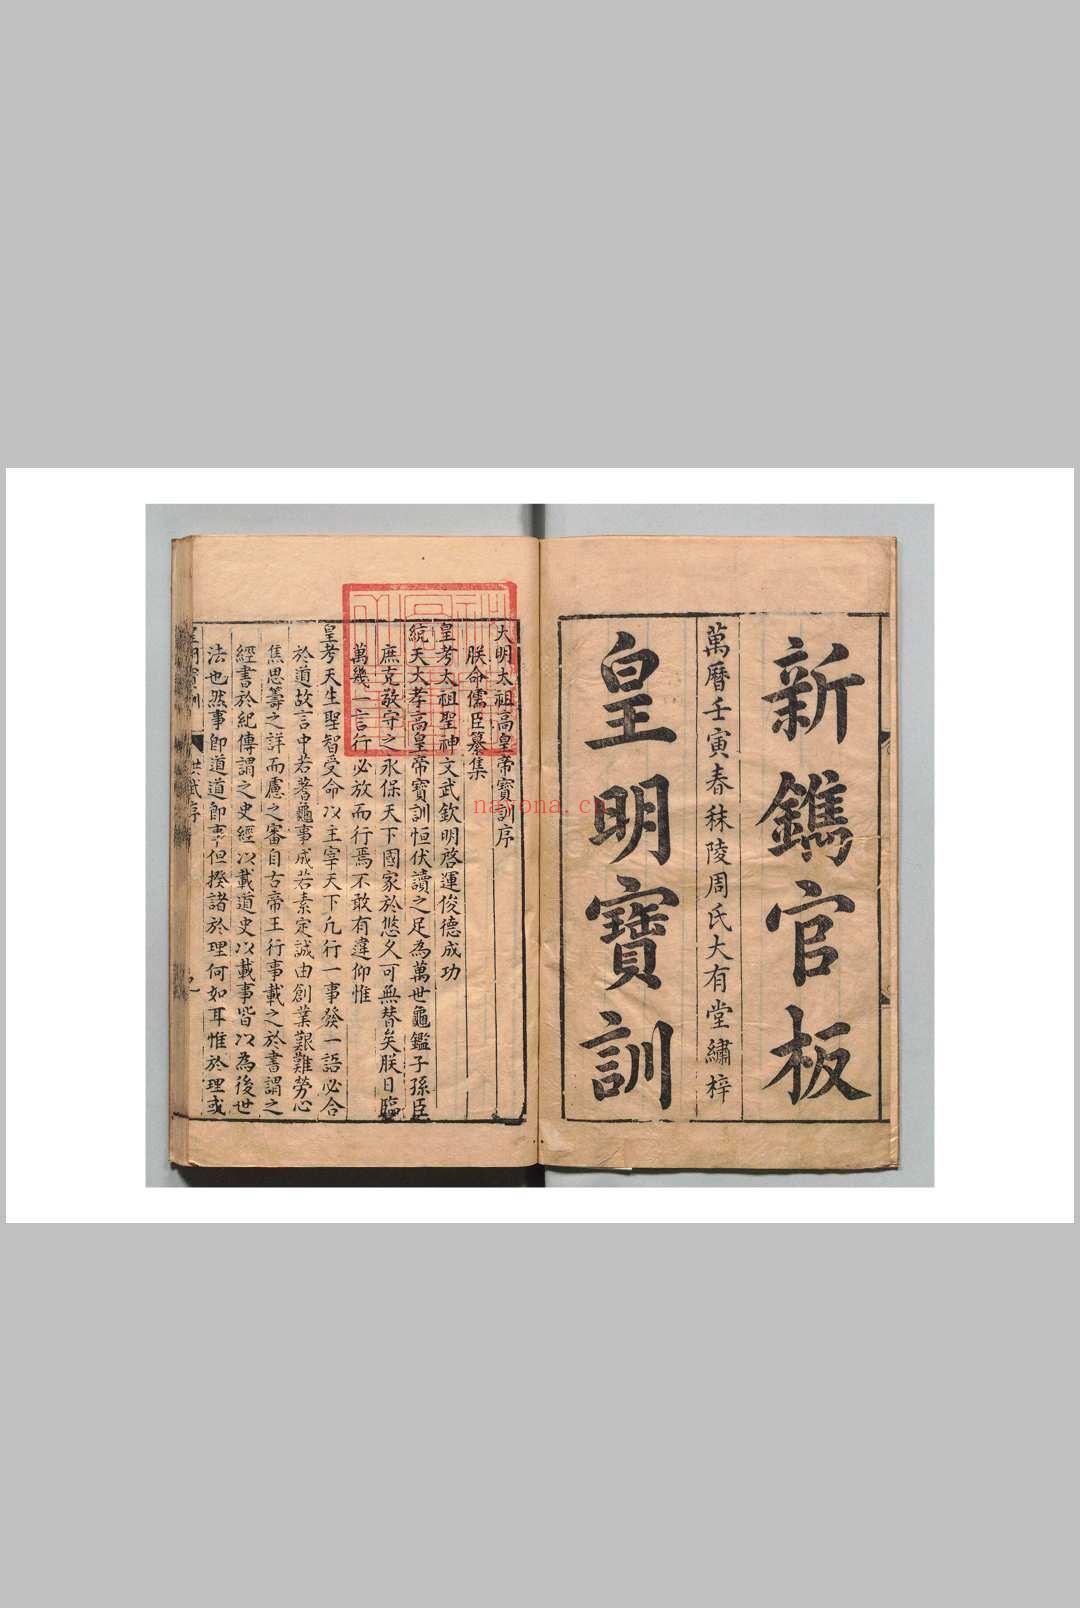 新鐫官板
萬曆壬寅春秣陵周氏大有堂繡梓
皇明寶訓
大明太祖高皇帝寶訓序
朕命儒臣纂集
皇考太祖聖神文武欽明啓運俊德成功
統天大孝高皇帝寶訓恒伏讀之足為萬世龜鑑子孫臣
庶克敬守之永保天下國家於悠久可無替矣朕日臨
萬幾一言行必放而行焉不敢有違仰惟
皇考天生聖智受命以主宰天下凡行一事發一語必合
於道故言中若蓍龜事成若素定誠由創業艱難勞心
焦思籌之詳而慮之審自古帝王行事載之於書謂之
經書於紀傳謂之史經以載道史以載事皆以為後世
法也然事即道道即事但揆諸於理何如耳惟於理或
皇明寶訓 洪武序
nayona.cn